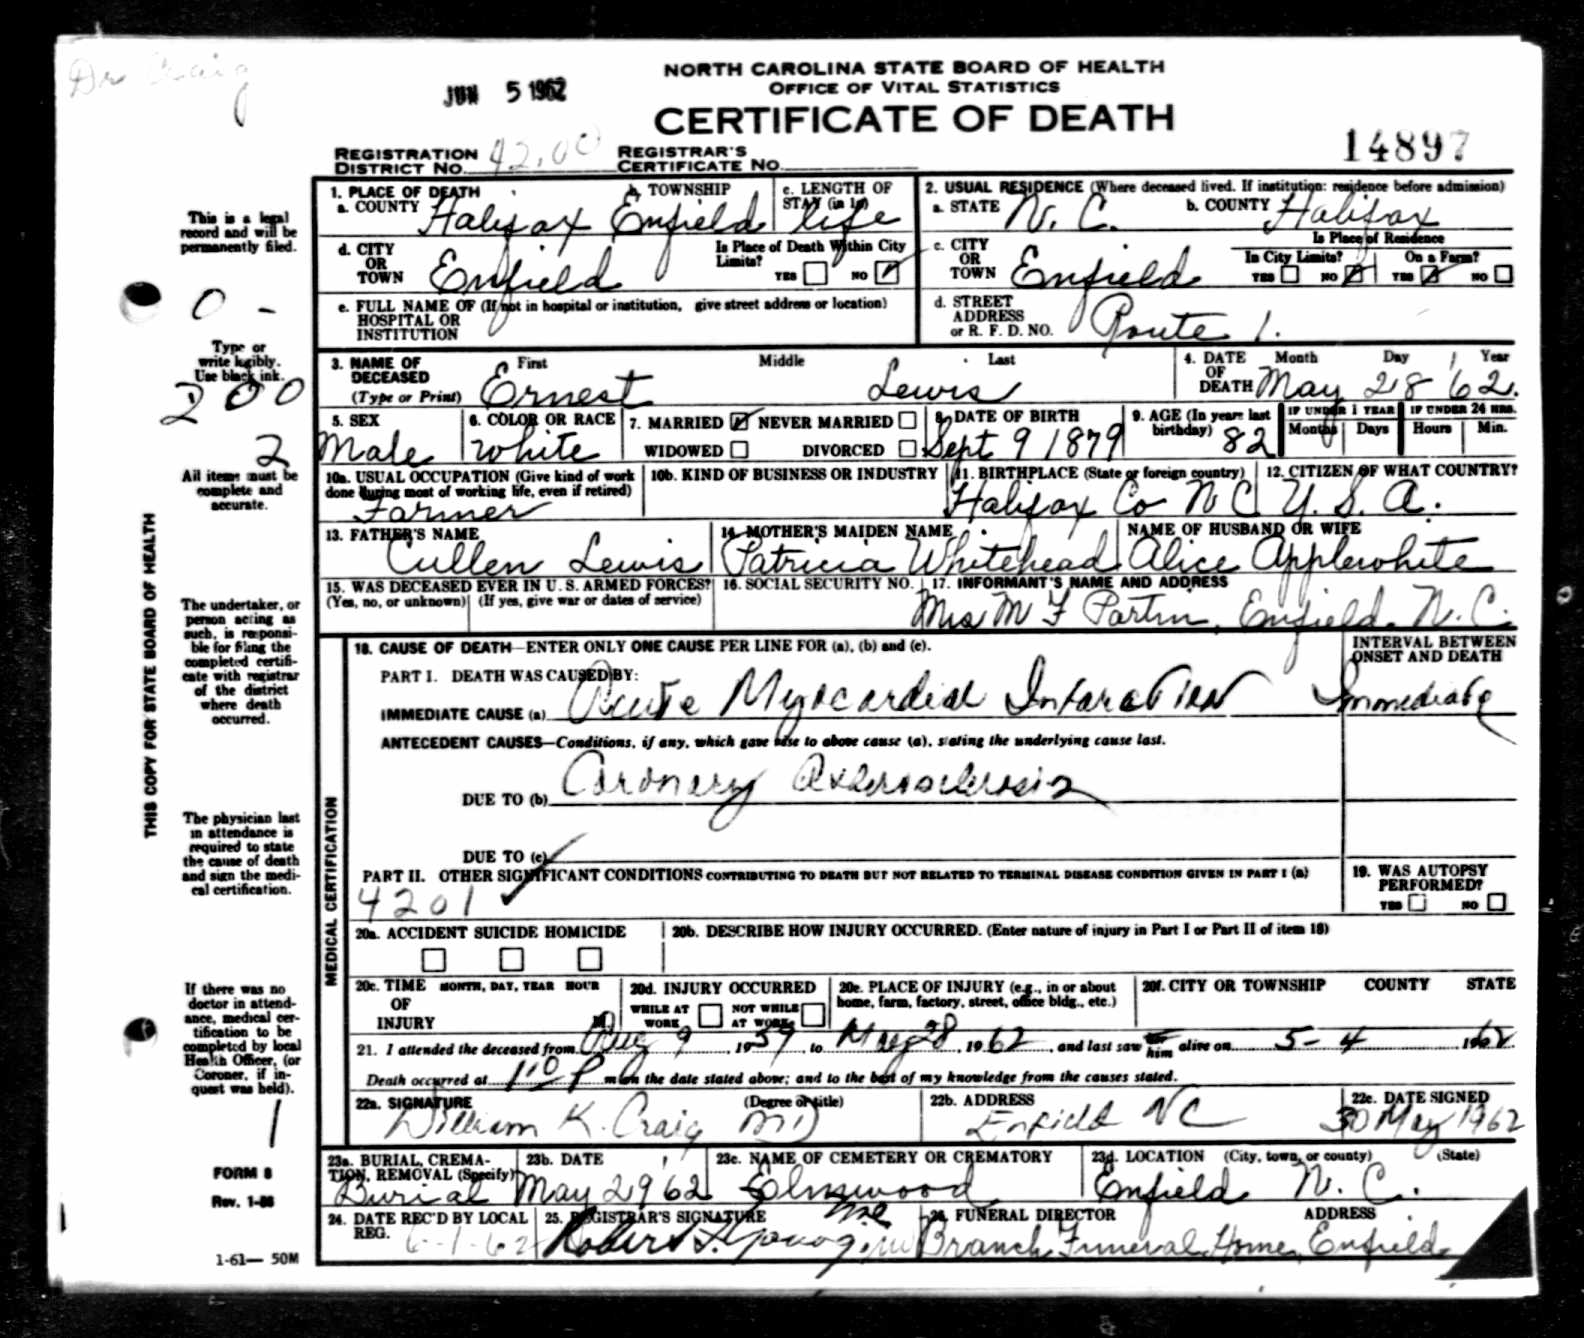 Dr Craig
JUN 5 1962
NORTH CAROLINA STATE BOARD OF HEALTH
OFFICE OF VITAL STATISTICS
CERTIFICATE OF DEATH
14897
REGISTRATION DISTRICT NO. 42.00 REGISTRAR'S CERTIFICATE NO.
This is a legal record and will be permanently filed.
0 -
Type or write legibly. Use black ink.
200
2
All items must be complete and accurate.
THIS COPY FOR STATE BOARD OF HEALTH
The undertaker, or person acting as such, is responsible for filing the completed certificate with registrar of the district where death occurred.
The physician last in attendance is required to state the cause of death and sign the medical certification.
If there was no doctor in attendance, medical certification to be completed by local Health Officer, (or Coroner, if inquest was held).
1
FORM 8
Rev. 1-56
1-61— 50M
1. PLACE OF DEATH
a. COUNTY Halifax b. TOWNSHIP Enfield c. LENGTH OF STAY (in 1b) life
d. CITY OR TOWN Enfield Is Place of Death Within City Limits? YES NO
e. FULL NAME OF (If not in hospital or institution, give street address or location) HOSPITAL OR INSTITUTION
2. USUAL RESIDENCE (Where deceased lived. If institution: residence before admission)
a. STATE N. C. b. COUNTY Halifax
c. CITY OR TOWN Enfield Is Place of Residence In City Limits? YES NO On a Farm? YES NO
d. STREET ADDRESS or R. F. D. NO. Route 1.
3. NAME OF DECEASED (Type or Print) First Ernest Middle Last Lewis
4. DATE OF DEATH Month Day Year May 28 '62.
5. SEX Male
6. COLOR OR RACE White
7. MARRIED NEVER MARRIED WIDOWED DIVORCED
8. DATE OF BIRTH Sept 9 1879
9. AGE (In years last birthday) 82 IF UNDER 1 YEAR Months Days IF UNDER 24 HRS. Hours Min.
10a. USUAL OCCUPATION (Give kind of work done during most of working life, even if retired) Farmer
10b. KIND OF BUSINESS OR INDUSTRY
11. BIRTHPLACE (State or foreign country) Halifax Co N C
12. CITIZEN OF WHAT COUNTRY? U. S. A.
13. FATHER'S NAME Cullen Lewis
14. MOTHER'S MAIDEN NAME Patricia Whitehead
NAME OF HUSBAND OR WIFE Alice Applewhite
15. WAS DECEASED EVER IN U. S. ARMED FORCES? (Yes, no, or unknown) (If yes, give war or dates of service)
16. SOCIAL SECURITY NO.
17. INFORMANT'S NAME AND ADDRESS Mrs M F Partin, Enfield, N. C.
MEDICAL CERTIFICATION
18. CAUSE OF DEATH—ENTER ONLY ONE CAUSE PER LINE FOR (a), (b) and (c).
INTERVAL BETWEEN ONSET AND DEATH
PART I. DEATH WAS CAUSED BY:
IMMEDIATE CAUSE (a) Acute Myocardial Infarction Immediate
ANTECEDENT CAUSES—Conditions, if any, which gave rise to above cause (a), stating the underlying cause last.
DUE TO (b) Coronary
DUE TO (c)
PART II. OTHER SIGNIFICANT CONDITIONS CONTRIBUTING TO DEATH BUT NOT RELATED TO TERMINAL DISEASE CONDITION GIVEN IN PART I (a)
4201
19. WAS AUTOPSY PERFORMED? YES NO
20a. ACCIDENT SUICIDE HOMICIDE
20b. DESCRIBE HOW INJURY OCCURRED. (Enter nature of injury in Part I or Part II of item 18)
20c. TIME OF INJURY MONTH, DAY, YEAR HOUR
20d. INJURY OCCURRED WHILE AT WORK NOT WHILE AT WORK
20e. PLACE OF INJURY (e.g., in or about home, farm, factory, street, office bldg., etc.)
20f. CITY OR TOWNSHIP COUNTY STATE
21. I attended the deceased from Aug 9, 1959, to May 28, 1962, and last saw him alive on 5-4 1962.
Death occurred at 1:10 P m on the date stated above; and to the best of my knowledge from the causes stated.
22a. SIGNATURE (Degree or title) William K. Craig MD
22b. ADDRESS Enfield NC
22c. DATE SIGNED 30 May 1962
23a. BURIAL, CREMATION, REMOVAL (Specify) Burial
23b. DATE May 29 62
23c. NAME OF CEMETERY OR CREMATORY Elmwood
23d. LOCATION (City, town, or county) (State) Enfield N. C.
24. DATE REC'D BY LOCAL REG. 6-1-62
25. REGISTRAR'S SIGNATURE Robert
26. FUNERAL DIRECTOR ADDRESS Branch Funeral Home, Enfield